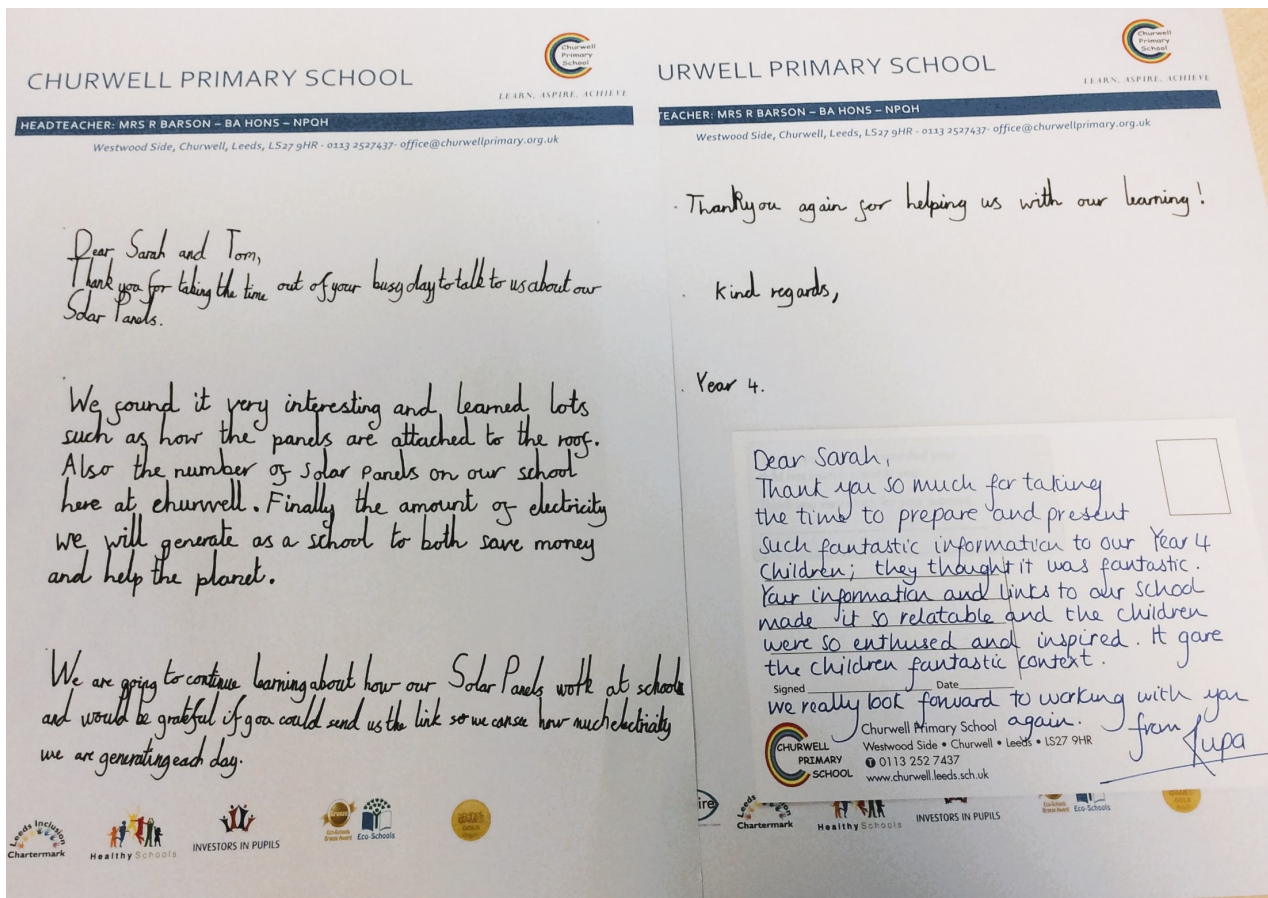 CHURWELL PRIMARY SCHOOL
Churwell
Primary
School
LEARN, ASPIRE, ACHIEVE
HEADTEACHER: MRS R BARSON – BA HONS – NPQH
Westwood Side, Churwell, Leeds, LS27 9HR - 0113 2527437- office@churwellprimary.org.uk
Dear Sarah and Tom,
Thank you for taking the time out of your busy day to talk to us about our
Solar Panels.
We found it very interesting and learned lots
such as how the panels are attached to the roof.
Also the number of Solar Panels on our school
here at churwell. Finally the amount of electricity
we will generate as a school to both save money
and help the planet.
We are going to continue learning about how our Solar Panels work at schools
and would be grateful if you could send us the link so we can see how much electricity
we are generating each day.
Leeds Inclusion
Chartermark
Healthy Schools
INVESTORS IN PUPILS
Bronze
Eco-Schools
Bronze Award
Eco-Schools
GOLD
URWELL PRIMARY SCHOOL
Churwell
Primary
School
LEARN, ASPIRE, ACHIEVE
TEACHER: MRS R BARSON – BA HONS – NPQH
Westwood Side, Churwell, Leeds, LS27 9HR - 0113 2527437- office@churwellprimary.org.uk
Thankyou again for helping us with our learning!
Kind regards,
Year 4.
Dear Sarah,
Thank you so much for taking
the time to prepare and present
such fantastic information to our Year 4
children; they thought it was fantastic.
Your information and links to our school
made it so relatable and the children
were so enthused and inspired. It gave
the children fantastic context.
Signed Date
We really look forward to working with you
again.
from Rupa
CHURWELL
PRIMARY
SCHOOL
Churwell Primary School
Westwood Side • Churwell • Leeds • LS27 9HR
0113 252 7437
www.churwell.leeds.sch.uk
ire
Leeds
Chartermark
Healthy Schools
INVESTORS IN PUPILS
Eco-Schools
Bronze Award
Eco-Schools
GOLD